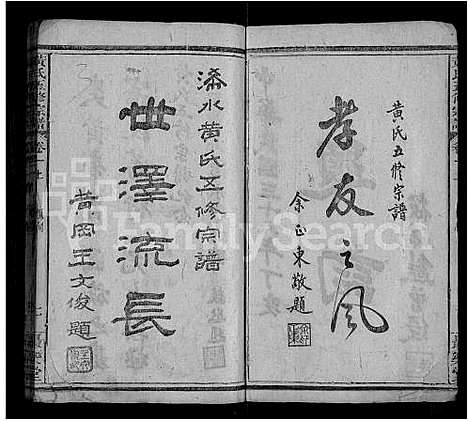 黄氏五修宗譜
孝友之風
余正東敬題
浠水黄氏五修宗譜
世澤流長
黄岡王文俊題
FamilySearch